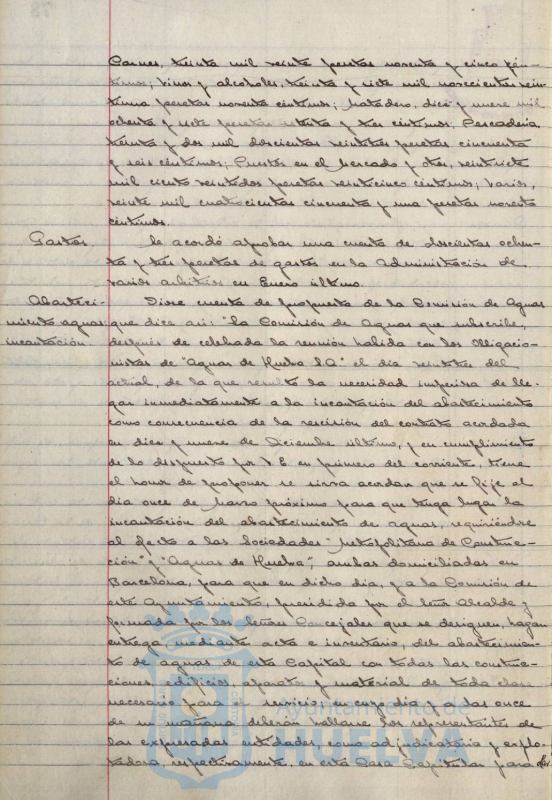 Carnes, treinta mil veinte pesetas noventa y cinco cén-
timos; vinos y alcoholes, treinta y siete mil novecientas vein-
tiuna pesetas noventa céntimos; Matadero, diez y nueve mil
ochenta y siete pesetas setenta y tres céntimos; Pescadería
treinta y dos mil doscientas veintitres pesetas cincuenta
y seis céntimos; Puestos en el Mercado y otros, veintisiete
mil ciento veintidos pesetas veinticinco céntimos; varios,
veinte mil cuatrocientas cincuenta y una pesetas noventa
céntimos.
Gastos. Se acordó aprobar una cuenta de doscientas ochen-
ta y tres pesetas de gastos en la Administración de
varios arbitrios en Enero último.
Abasteci- Diose cuenta de propuesta de la Comisión de Aguas
miento aguas que dice así: "La Comisión de Aguas que subscribe,
incautación. después de celebrada la reunión habida con los Obligacio-
nistas de "Aguas de Huelva S.A." el día veintitres del
actual, de la que resultó la necesidad imperiosa de lle-
gar inmediatamente a la incautación del abastecimiento
como consecuencia de la rescisión del contrato acordada
en diez y nueve de Diciembre último, y en cumplimiento
de lo dispuesto por V.E. en primero del corriente, tiene
el honor de proponer se sirva acordar que se fije el
día once de Marzo próximo para que tenga lugar la
incautación del abastecimiento de aguas, requiriéndose
al efecto a las Sociedades "Metropolitana de Construc-
ción" y "Aguas de Huelva", ambas domiciliadas en
Barcelona, para que en dicho día, y a la Comisión de
este Ayuntamiento, presidida por el Señor Alcalde y
formada por los Señores Concejales que se designen, hagan
entrega, mediante acta e inventario, del abastecimien-
to de aguas de esta Capital con todas las construc-
ciones, edificios, aparatos y material de toda clase
necesario para el servicio; en cuyo día y a las once
de su mañana deberán hallarse los representantes de
las expresadas entidades, como adjudicataria y explo-
tadora, respectivamente, en esta Casa Capitular para
Ayuntamiento de
HUELVA